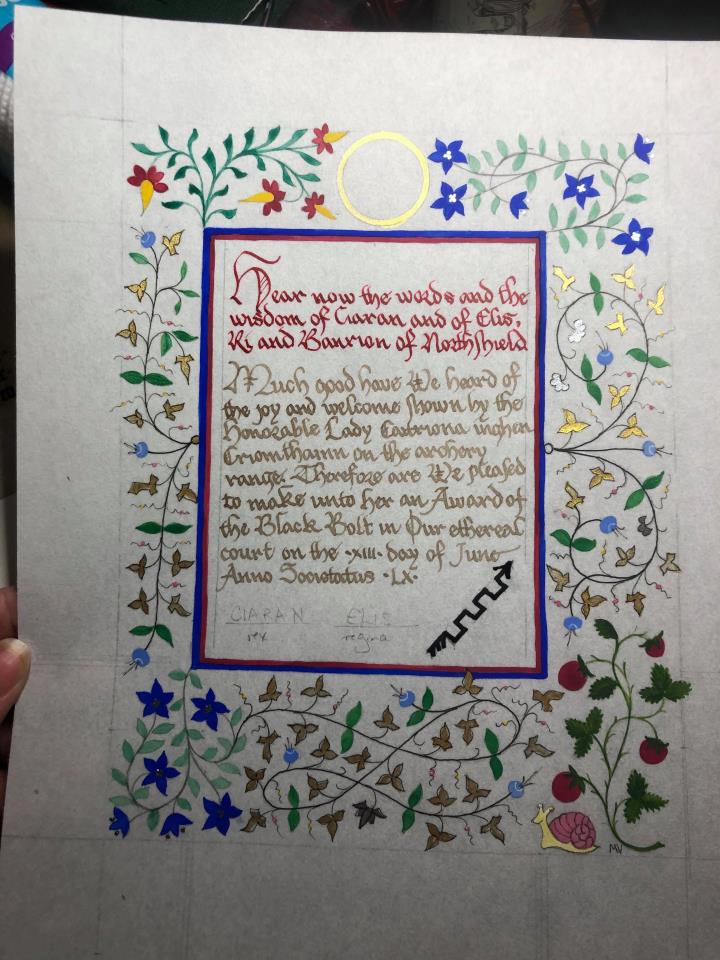 Hear now the words and the
wisdom of Ciaran and of Elis,
Ri and Banrion of Northshield
Much good have We heard of
the joy and welcome shown by the
Honorable Lady Caitriona inghen
Criomthainn on the archery
range. Therefore are We pleased
to make unto her an Award of
the Black Bolt in Our ethereal
court on the ·XIII· day of June
Anno Societatus ·LX·
CIARAN ELIS
rex regina
MV